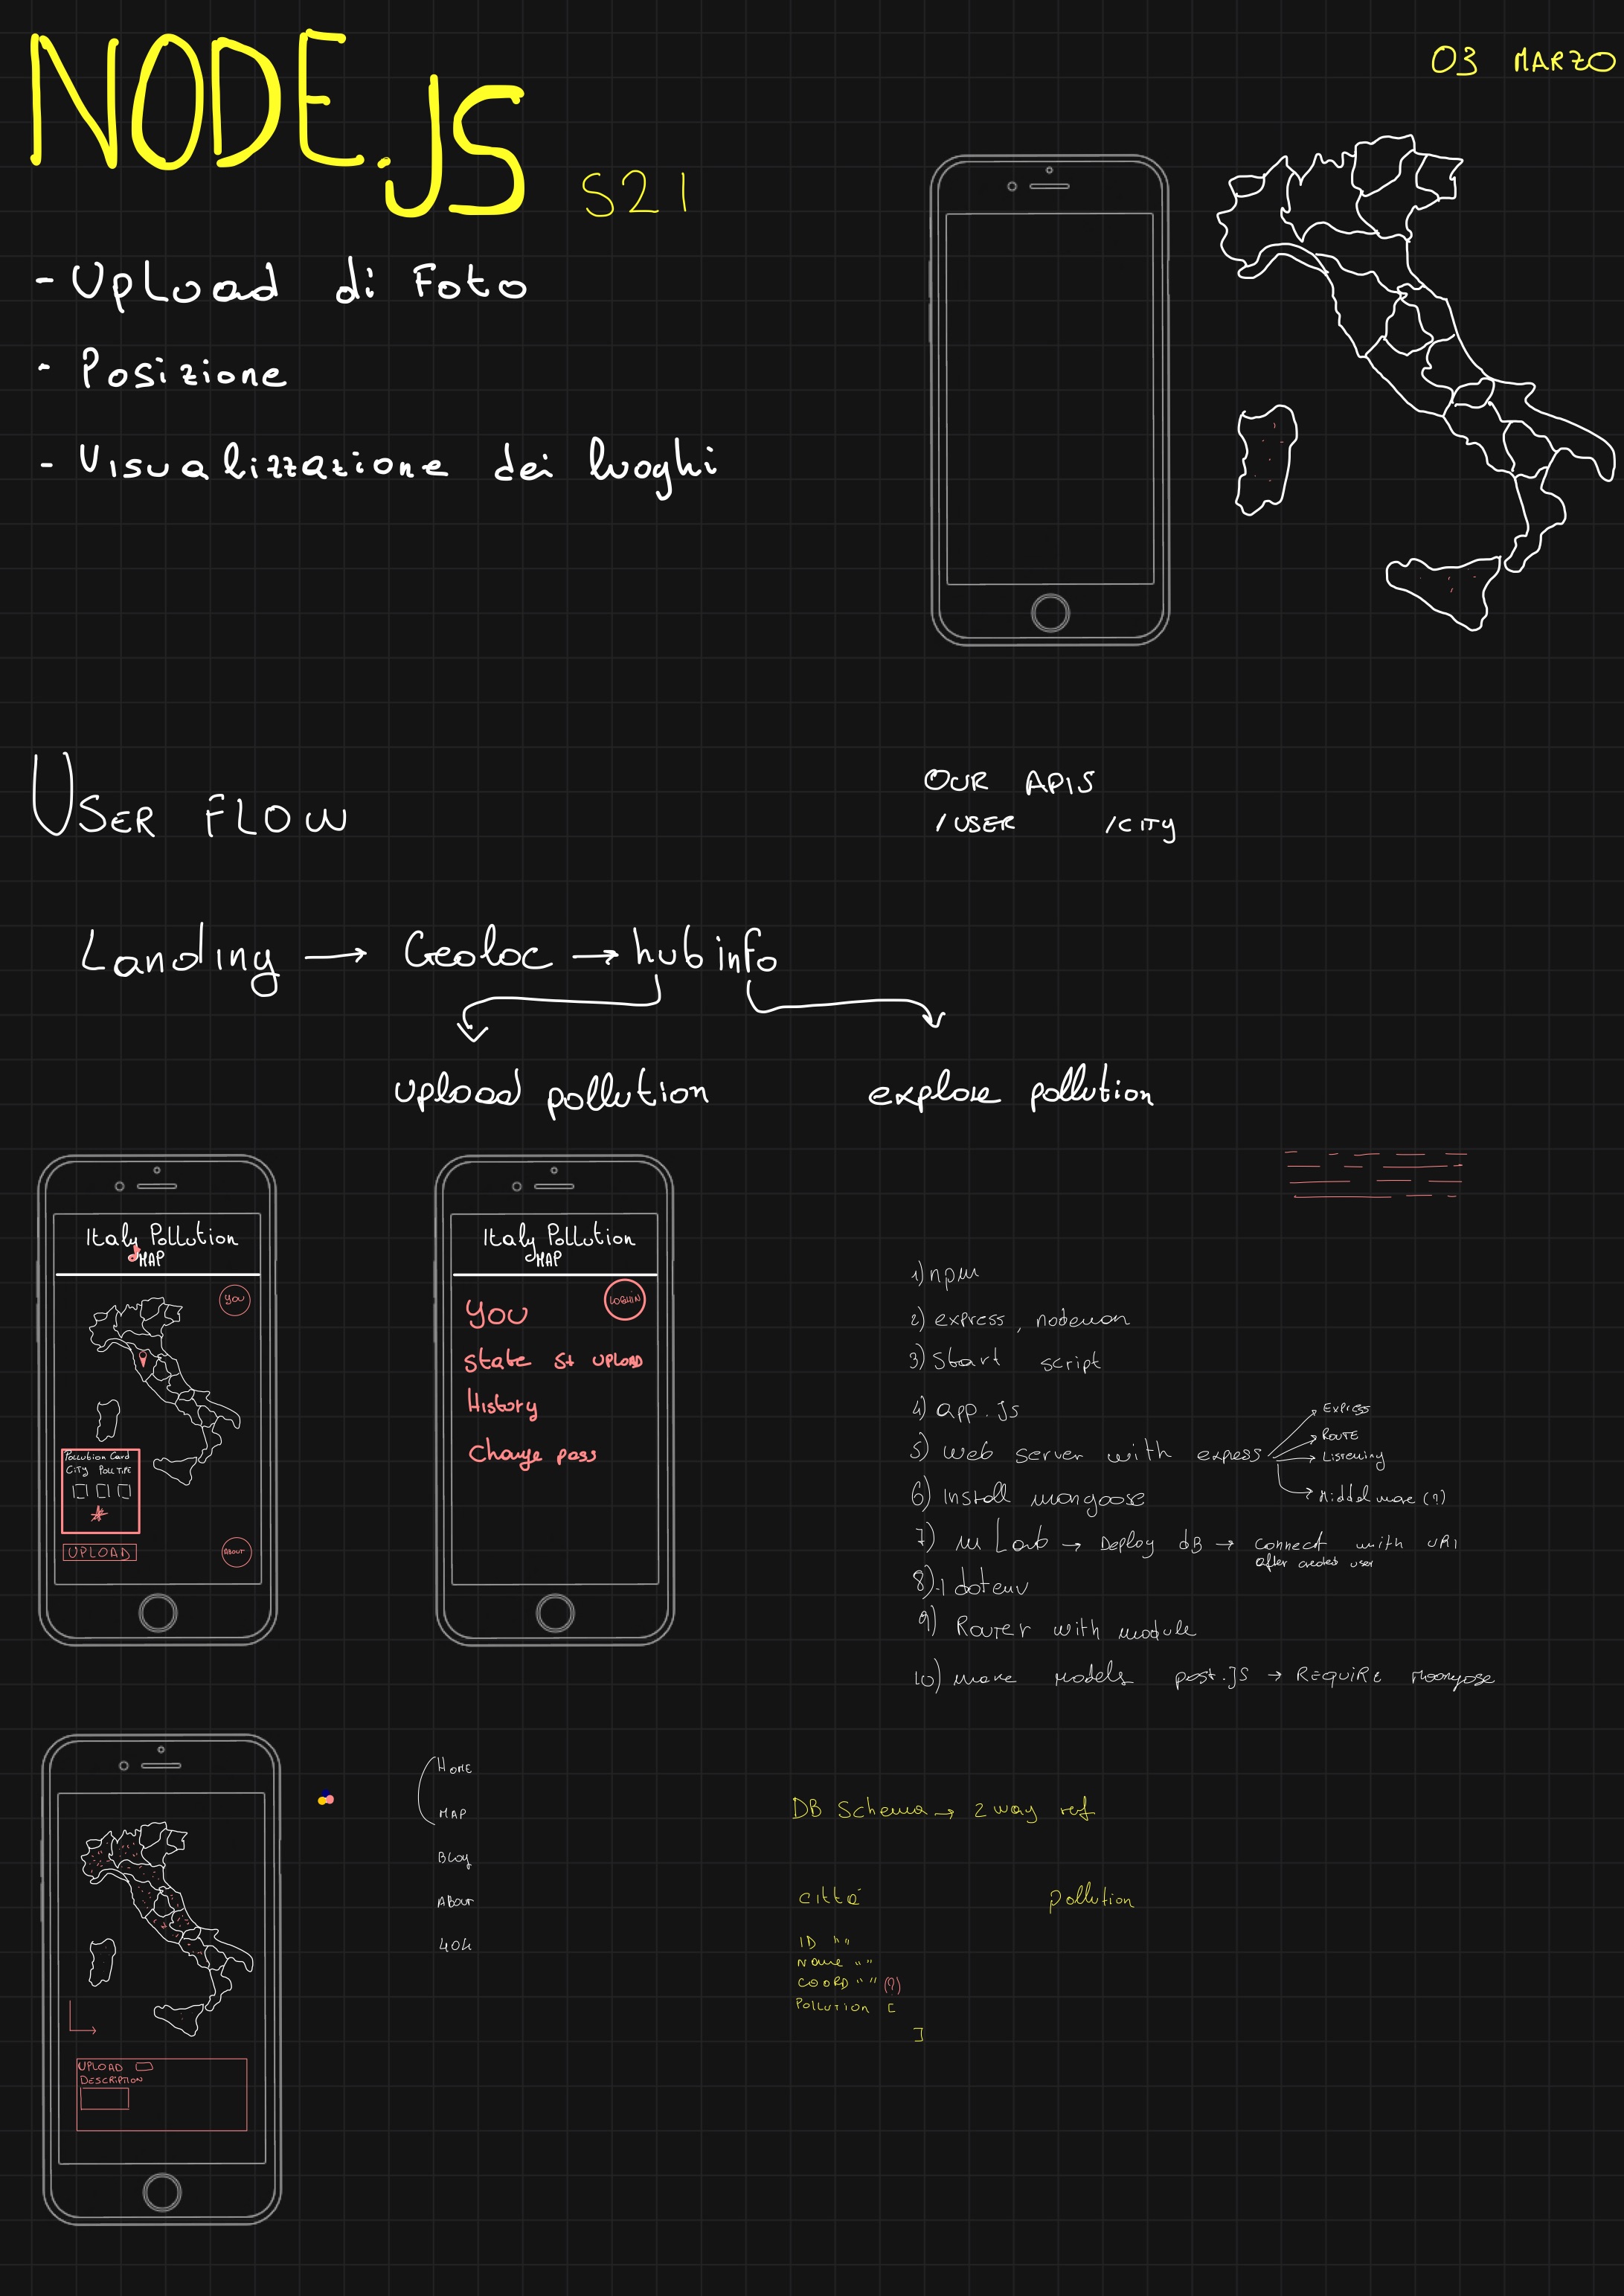 NODE.JS S21
03 MARZO
- Upload di Foto
- Posizione
- Visualizzazione dei luoghi
USER FLOW
OUR APIS
/USER /CITY
Landing → Geoloc → hub info
upload pollution
explore pollution
Italy Pollution
MAP
YOU
Pollution Card
CITY POLL TIPE
UPLOAD
ABOUT
Italy Pollution
MAP
YOU
LOGHIN
State St UPLOAD
History
Change pass
1) npm
2) express, nodemon
3) Start script
4) app.js
5) Web server with express
Express
ROUTE
Listening
Middelware (?)
6) Install mongoose
7) mLab → Deploy dB → Connect with URI
after created user
8).1 dotenv
9) Router with module
10) make models post.JS → REQUIRE moongose
HOME
MAP
Blog
ABOUT
404
DB Schema → 2 way ref
città
pollution
ID ""
Name ""
COORD "" (?)
Pollution [
]
UPLOAD
DESCRIPTION